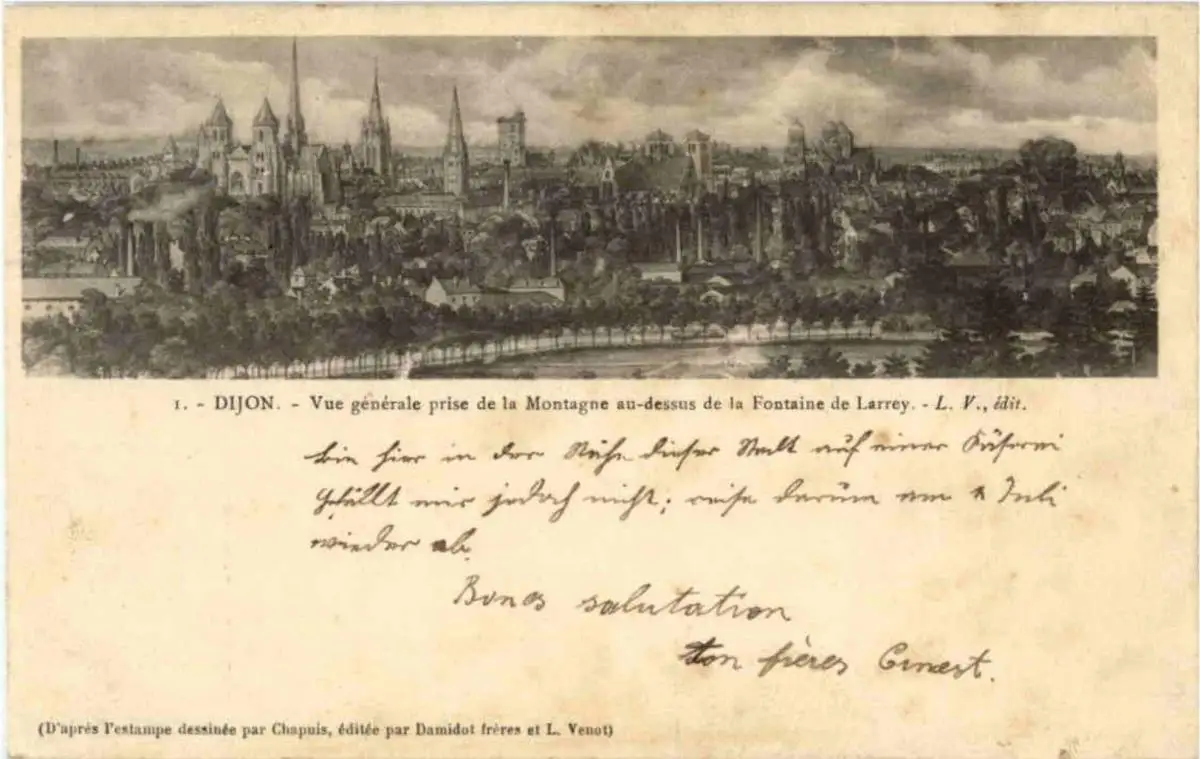 1. - DIJON. - Vue générale prise de la Montagne au-dessus de la Fontaine de Larrey. - L. V., édit.
bin hier in der Nähe dieser Stadt auf einer Käserei
gefällt mir jedoch nicht; reise darum am Juli
wieder ab.
Bones salutation
ton frères Ernest.
(D'après l'estampe dessinée par Chapuis, éditée par Damidot frères et L. Venot)